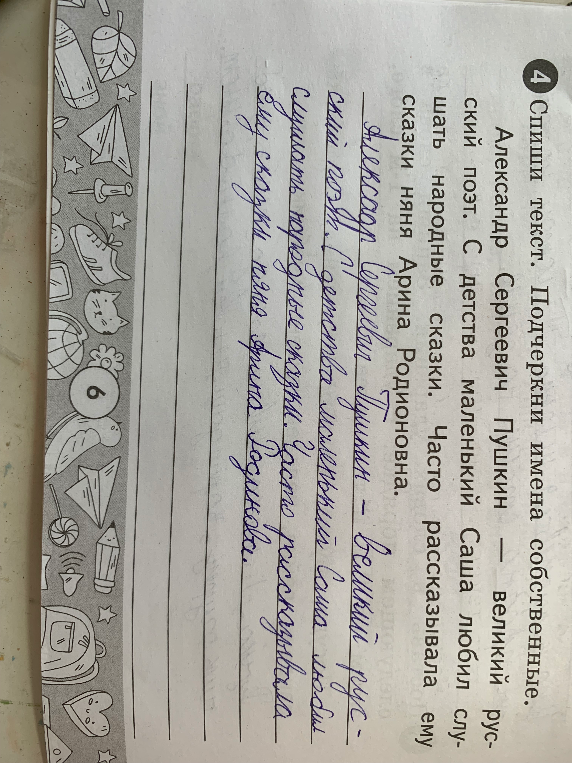 4 Спиши текст. Подчеркни имена собственные.
Александр Сергеевич Пушкин — великий рус-
ский поэт. С детства маленький Саша любил слу-
шать народные сказки. Часто рассказывала ему
сказки няня Арина Родионовна.
Александр Сергеевич Пушкин – великий рус-
ский поэт. С детства маленький Саша любил
слушать народные сказки. Часто рассказывала
ему сказки няня Арина Родинова.
6